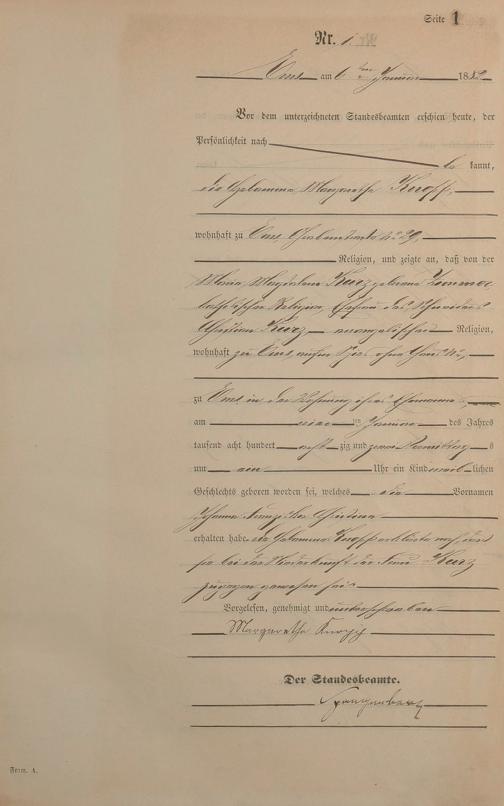 Seite 1
Nr. 1.
Ems am 6 ten Januar 1882
Vor dem unterzeichneten Standesbeamten erschien heute, der
Persönlichkeit nach
be kannt,
die Hebamme Margarethe Knopp,
wohnhaft zu Ems, No 29,
Religion, und zeigte an, daß von der
Maria Magdalena Kurz geborene
katholischer Religion, Ehefrau des Schreiners
Christian Kurz evangelischer Religion,
wohnhaft zu Ems
zu Ems in der Wohnung ihres Ehemannes
am ten Januar des Jahres
tausend acht hundert acht zig und zwei Vormittags
um Uhr ein Kind weib lichen
Geschlechts geboren worden sei, welches die Vornamen
Johanna Christina
erhalten habe. die Hebamme Knopp erklärte noch, daß
sie bei der Niederkunft der Frau Kurz
zugegen gewesen sei.
Vorgelesen, genehmigt und unterschrieben
Margarethe Knopp
Der Standesbeamte.
Spangenberg
Form. A.